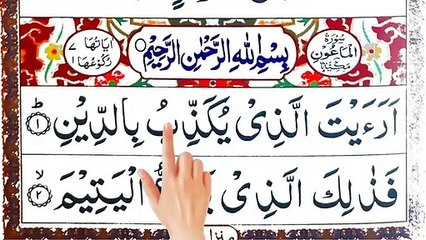 سُوْرَةُ الْمَاعُوْنِ مَكِّيَّةٌ
بِسْمِ اللّٰهِ الرَّحْمٰنِ الرَّحِيْمِ
اٰيَاتُهَا ٧ رُكُوْعُهَا ١
اَرَءَيْتَ الَّذِىْ يُكَذِّبُ بِالدِّيْنِ ؕ ١
فَذٰلِكَ الَّذِىْ الْيَتِيْمَ ۙ ٢